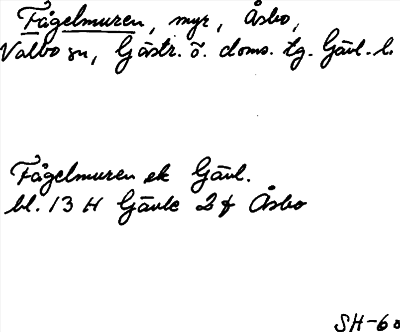 Fågelmuren, myr, Åsbo,
Valbo sn, Gästr. ö. doms. tg. Gävl. l.
Fågelmuren ek Gävl.
bl. 13 H Gävle 2 f Åsbo
SH-60